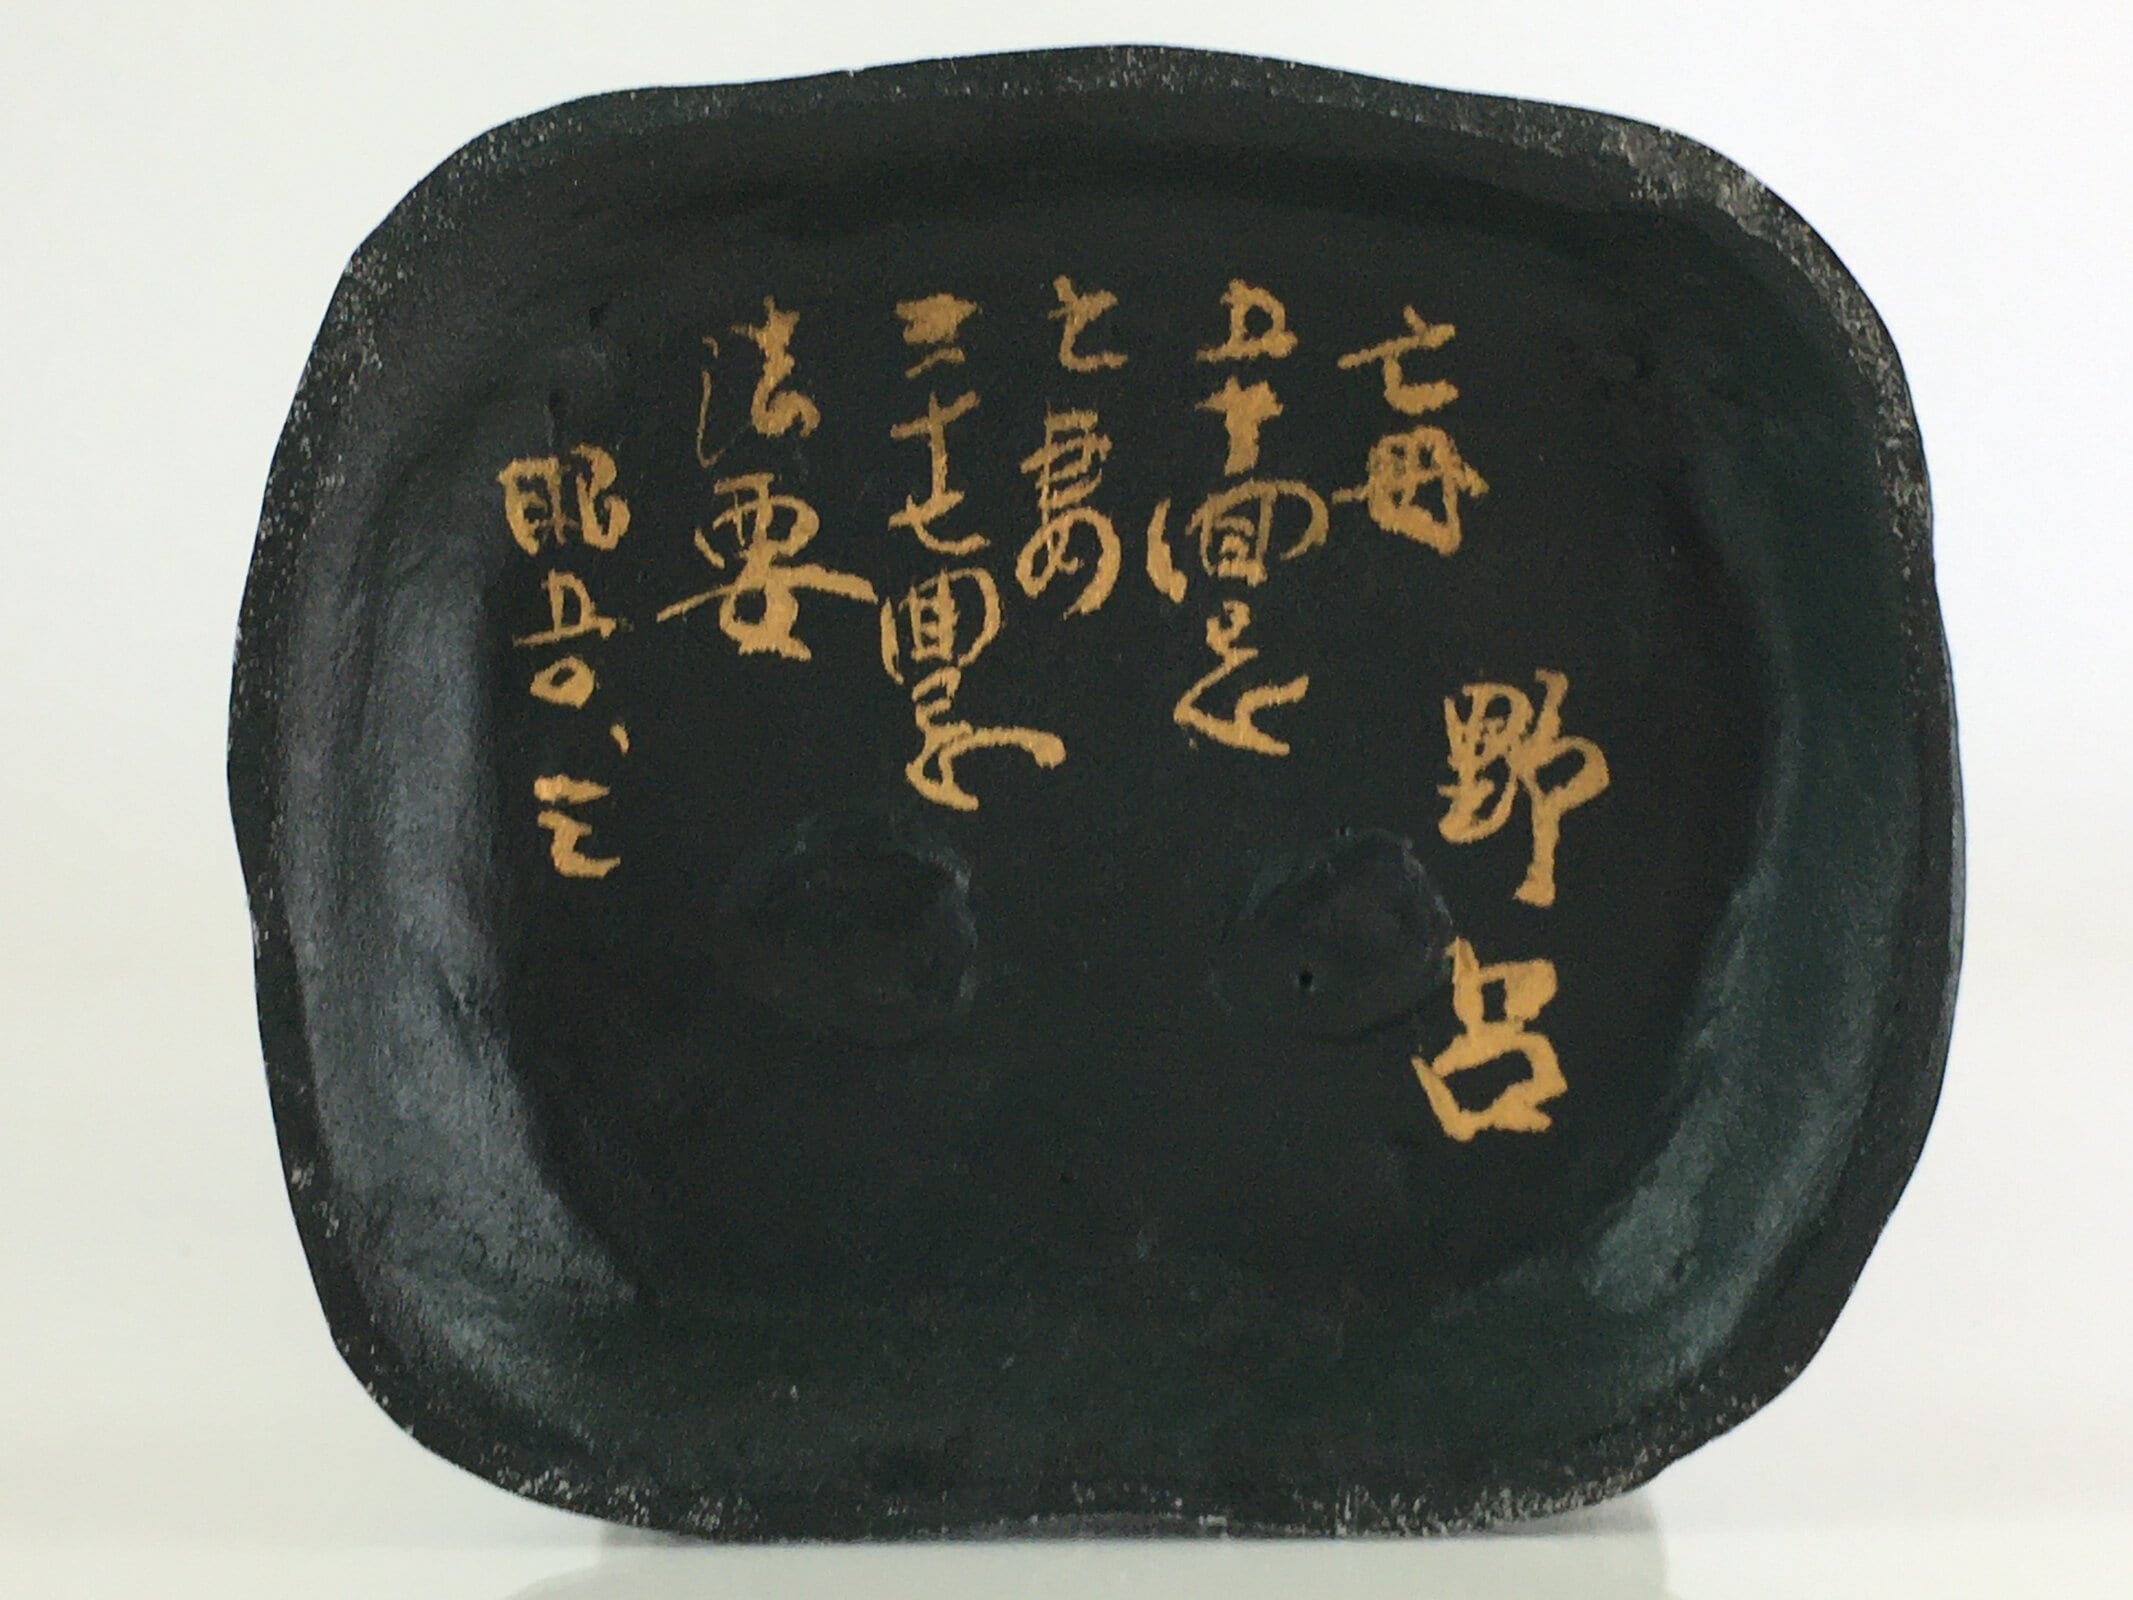 亡母
五十回忌
亡妻
三十七回忌
法要
昭五〇、三
野呂